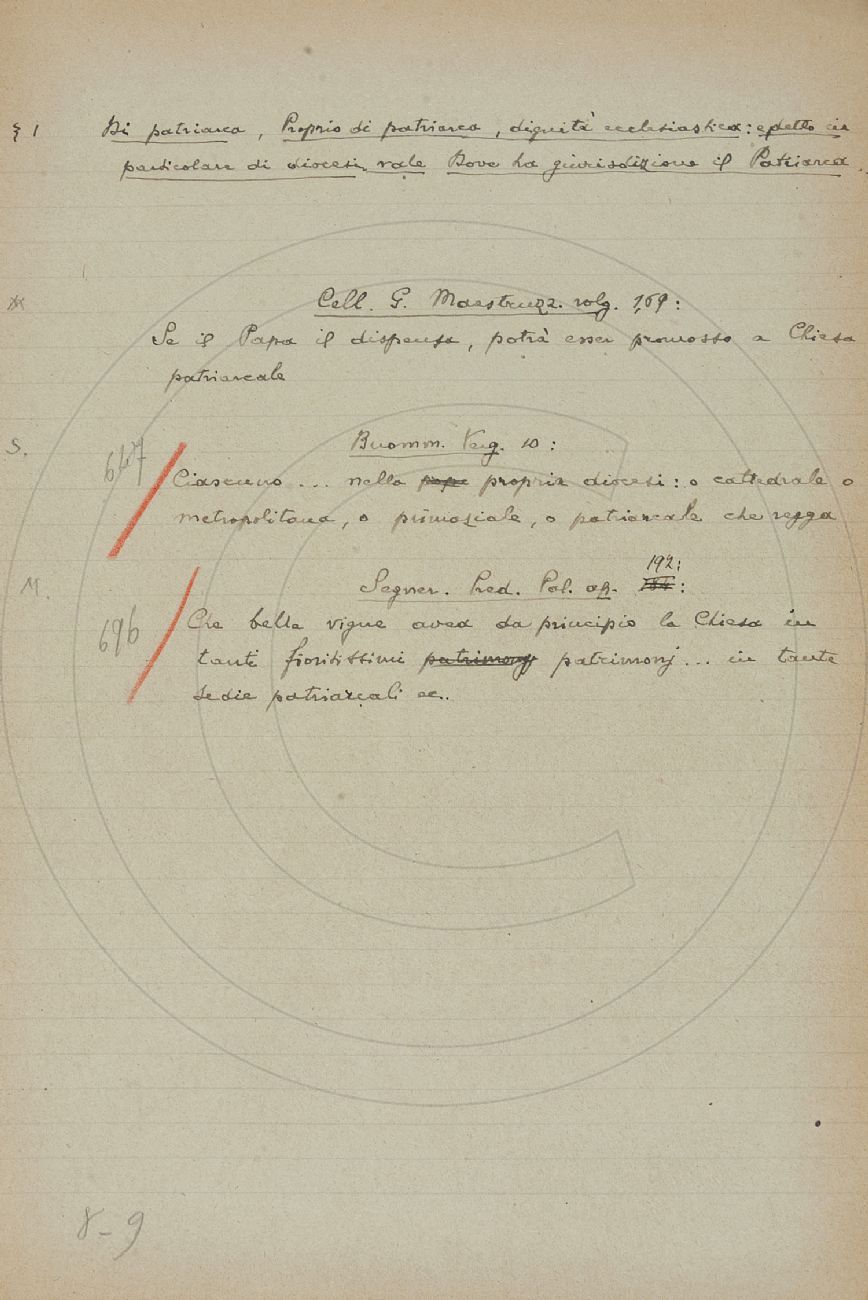 § 1 Di patriarca, Proprio di patriarca, dignità ecclesiastica: e detto in
particolare di diocesi, vale Dove ha giurisdizione il Patriarca.
Cell. G. Maestruzz. volg. 1,69:
Se il Papa il dispensa, potrà esser promosso a Chiesa
patriarcale
S. Buomm. Verg. 10:
647 Ciascuno ... nella propria diocesi: o cattedrale o
metropolitana, o primaziale, o patriarcale che regga
192:
M. Segner. Pred. Pal. ap. :
696 Che bella vigna avea da principio la Chiesa in
tanti fioritissimi patrimonj patrimonj... in tante
Sedie patriarcali ec..
8-9